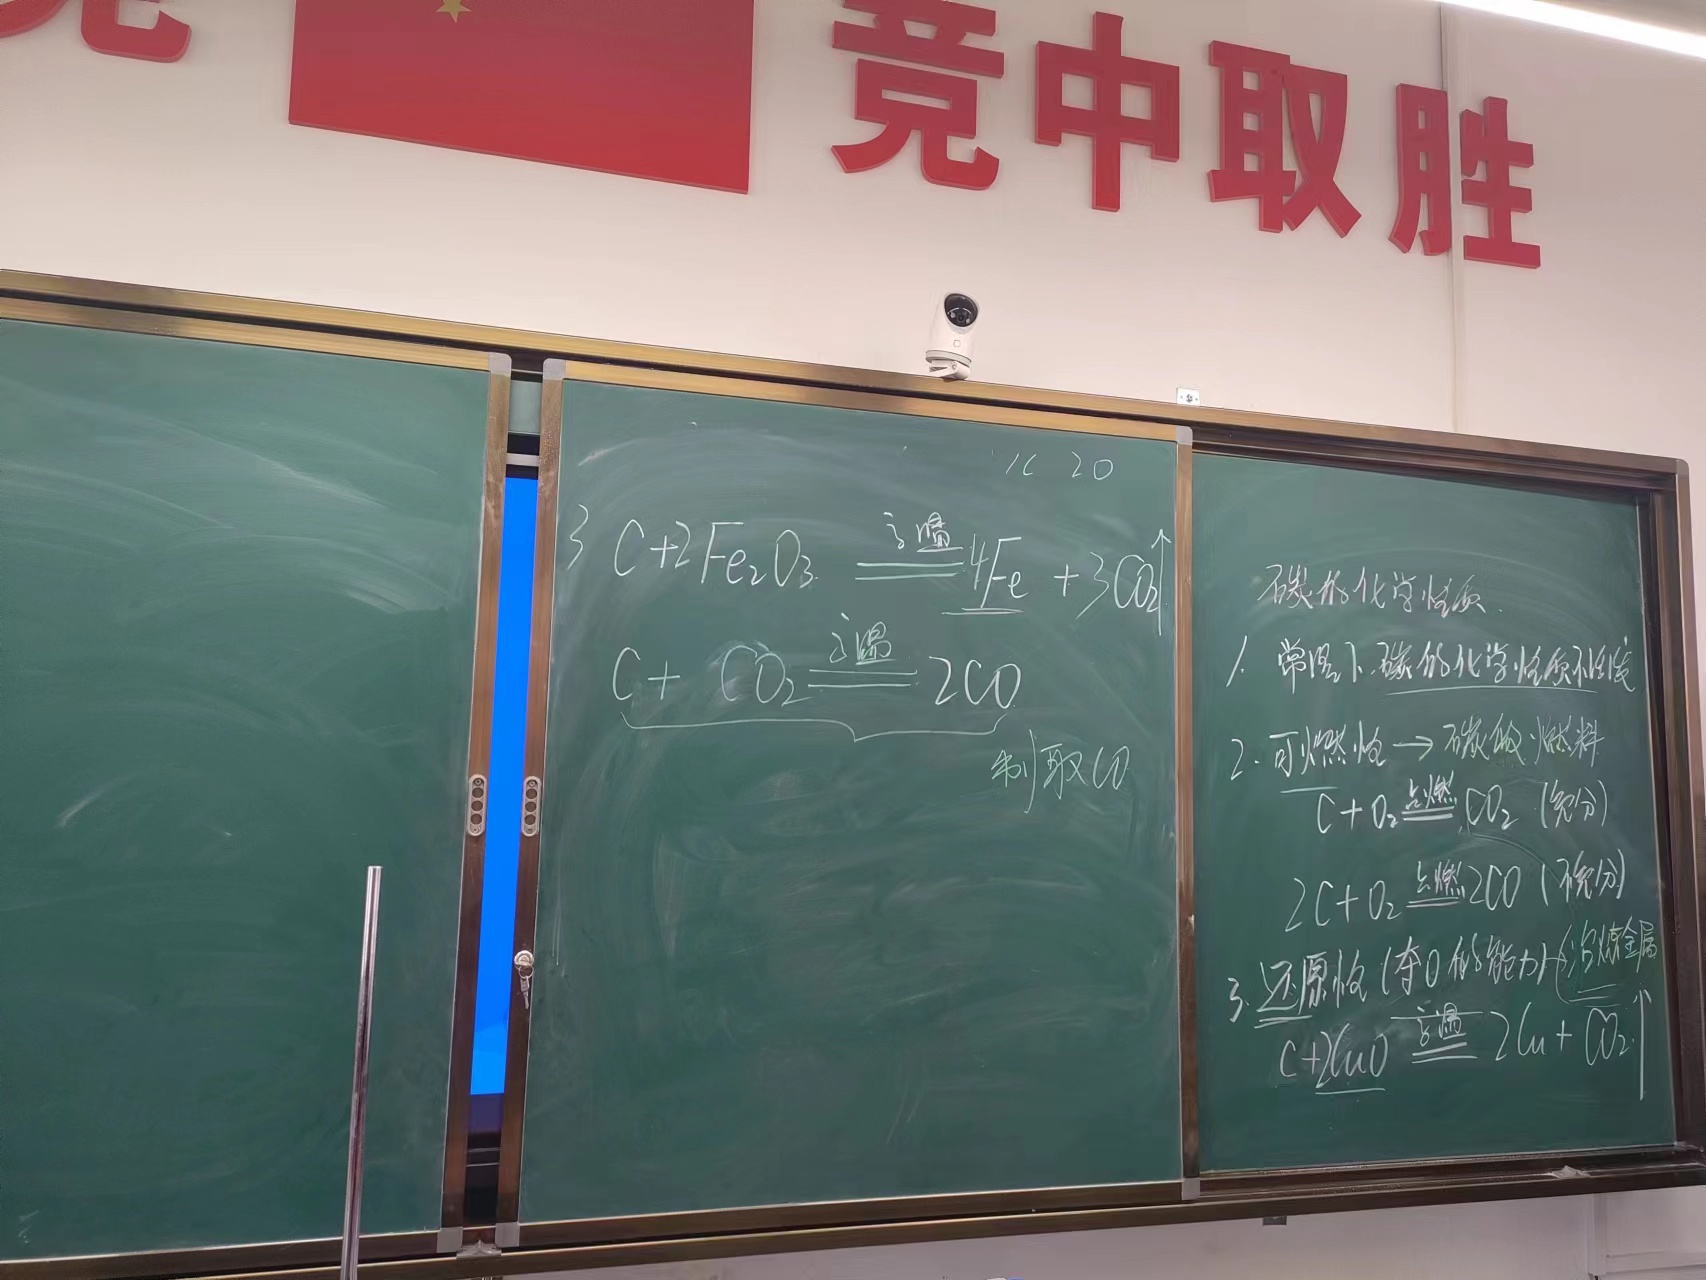 竞中取胜
20
3C+2Fe₂O₃ 高温 4Fe + 3CO₂↑
C + CO₂ 高温 2CO
制取CO
碳的化学性质.
1. 常温下碳的化学性质不活泼
2. 可燃性 → 碳做燃料
C + O₂ 点燃 CO₂ (充分)
2C + O₂ 点燃 2CO (不充分)
3. 还原性 (夺O的能力) 冶炼金属
C + 2CuO 高温 2Cu + CO₂↑